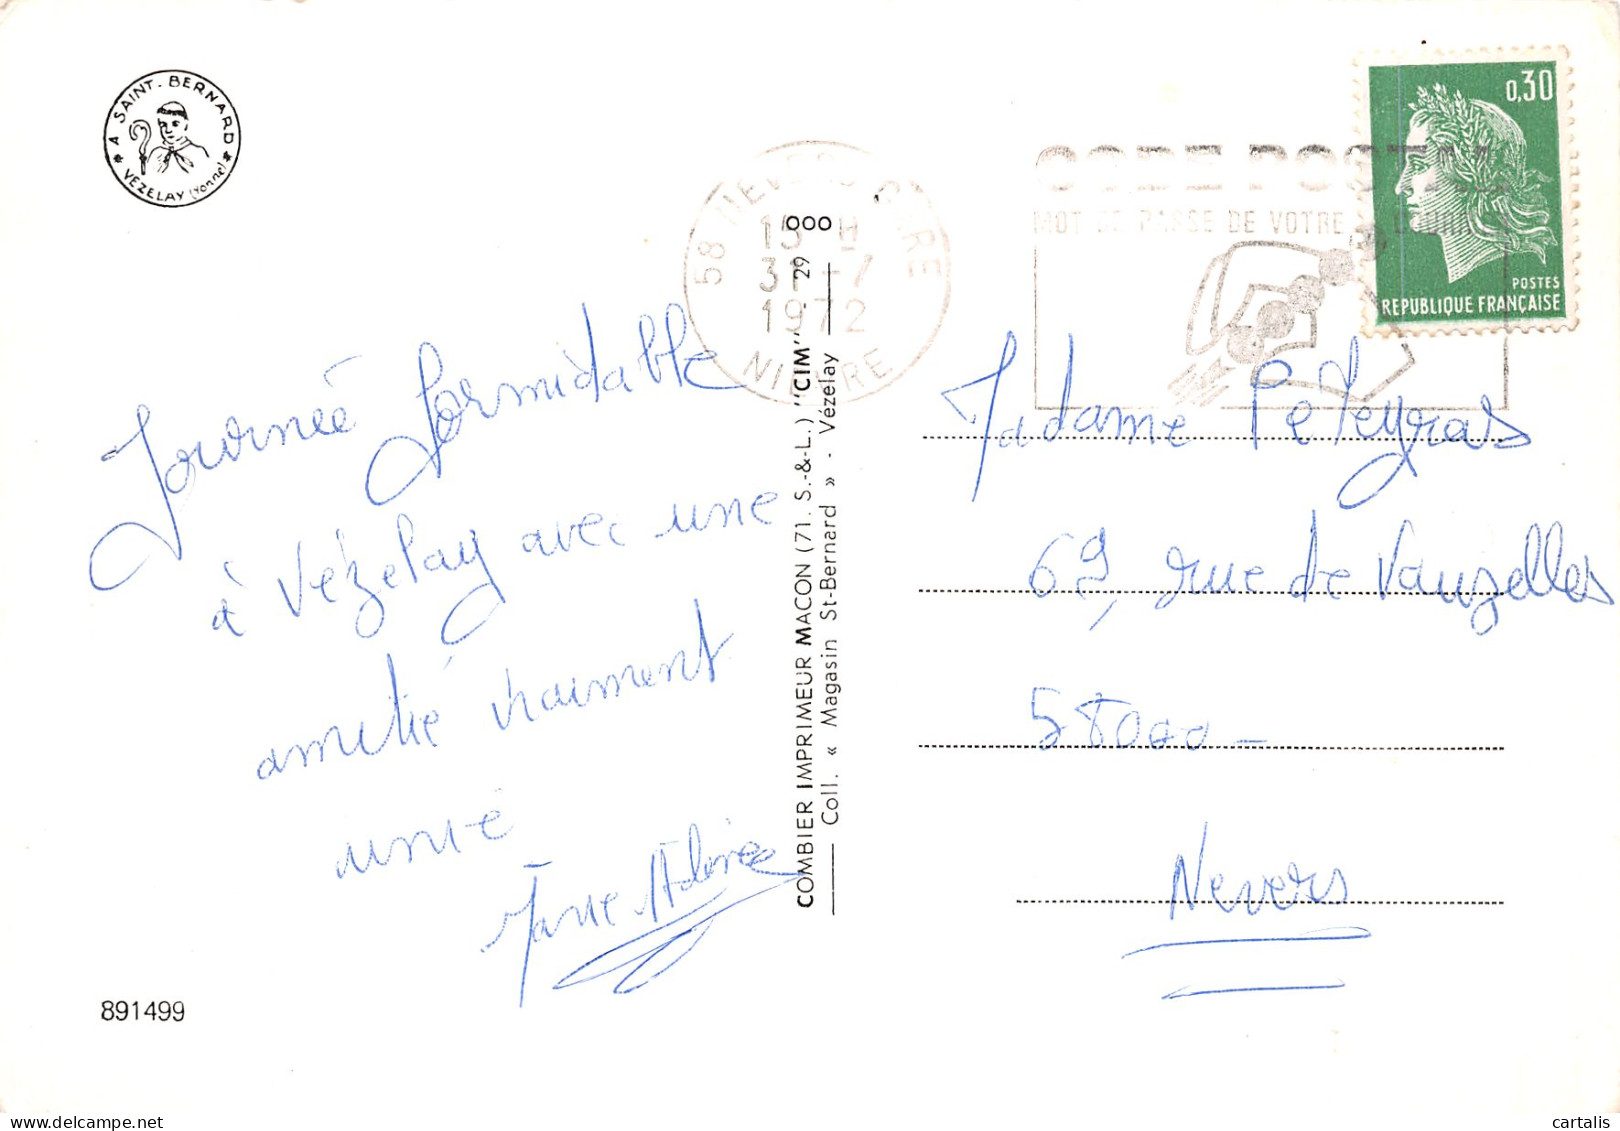 A SAINT-BERNARD
VÉZELAY (Yonne)
58 NEVERS GARE
15 H
31 -7
1972
NIEVRE
CODE POSTAL
MOT DE PASSE DE VOTRE COURRIER
0,30
POSTES
REPUBLIQUE FRANÇAISE
Journée formidable
à Vézelay avec une
amitié vraiment
unie
COMBIER IMPRIMEUR MACON (71. S.-&-L.) "CIM" - 29 000
Coll. « Magasin St-Bernard » - Vézelay
Madame Peteyras
69, rue de Vauzelles
58000 -
Nevers
891499
cartalis
www.delcampe.net